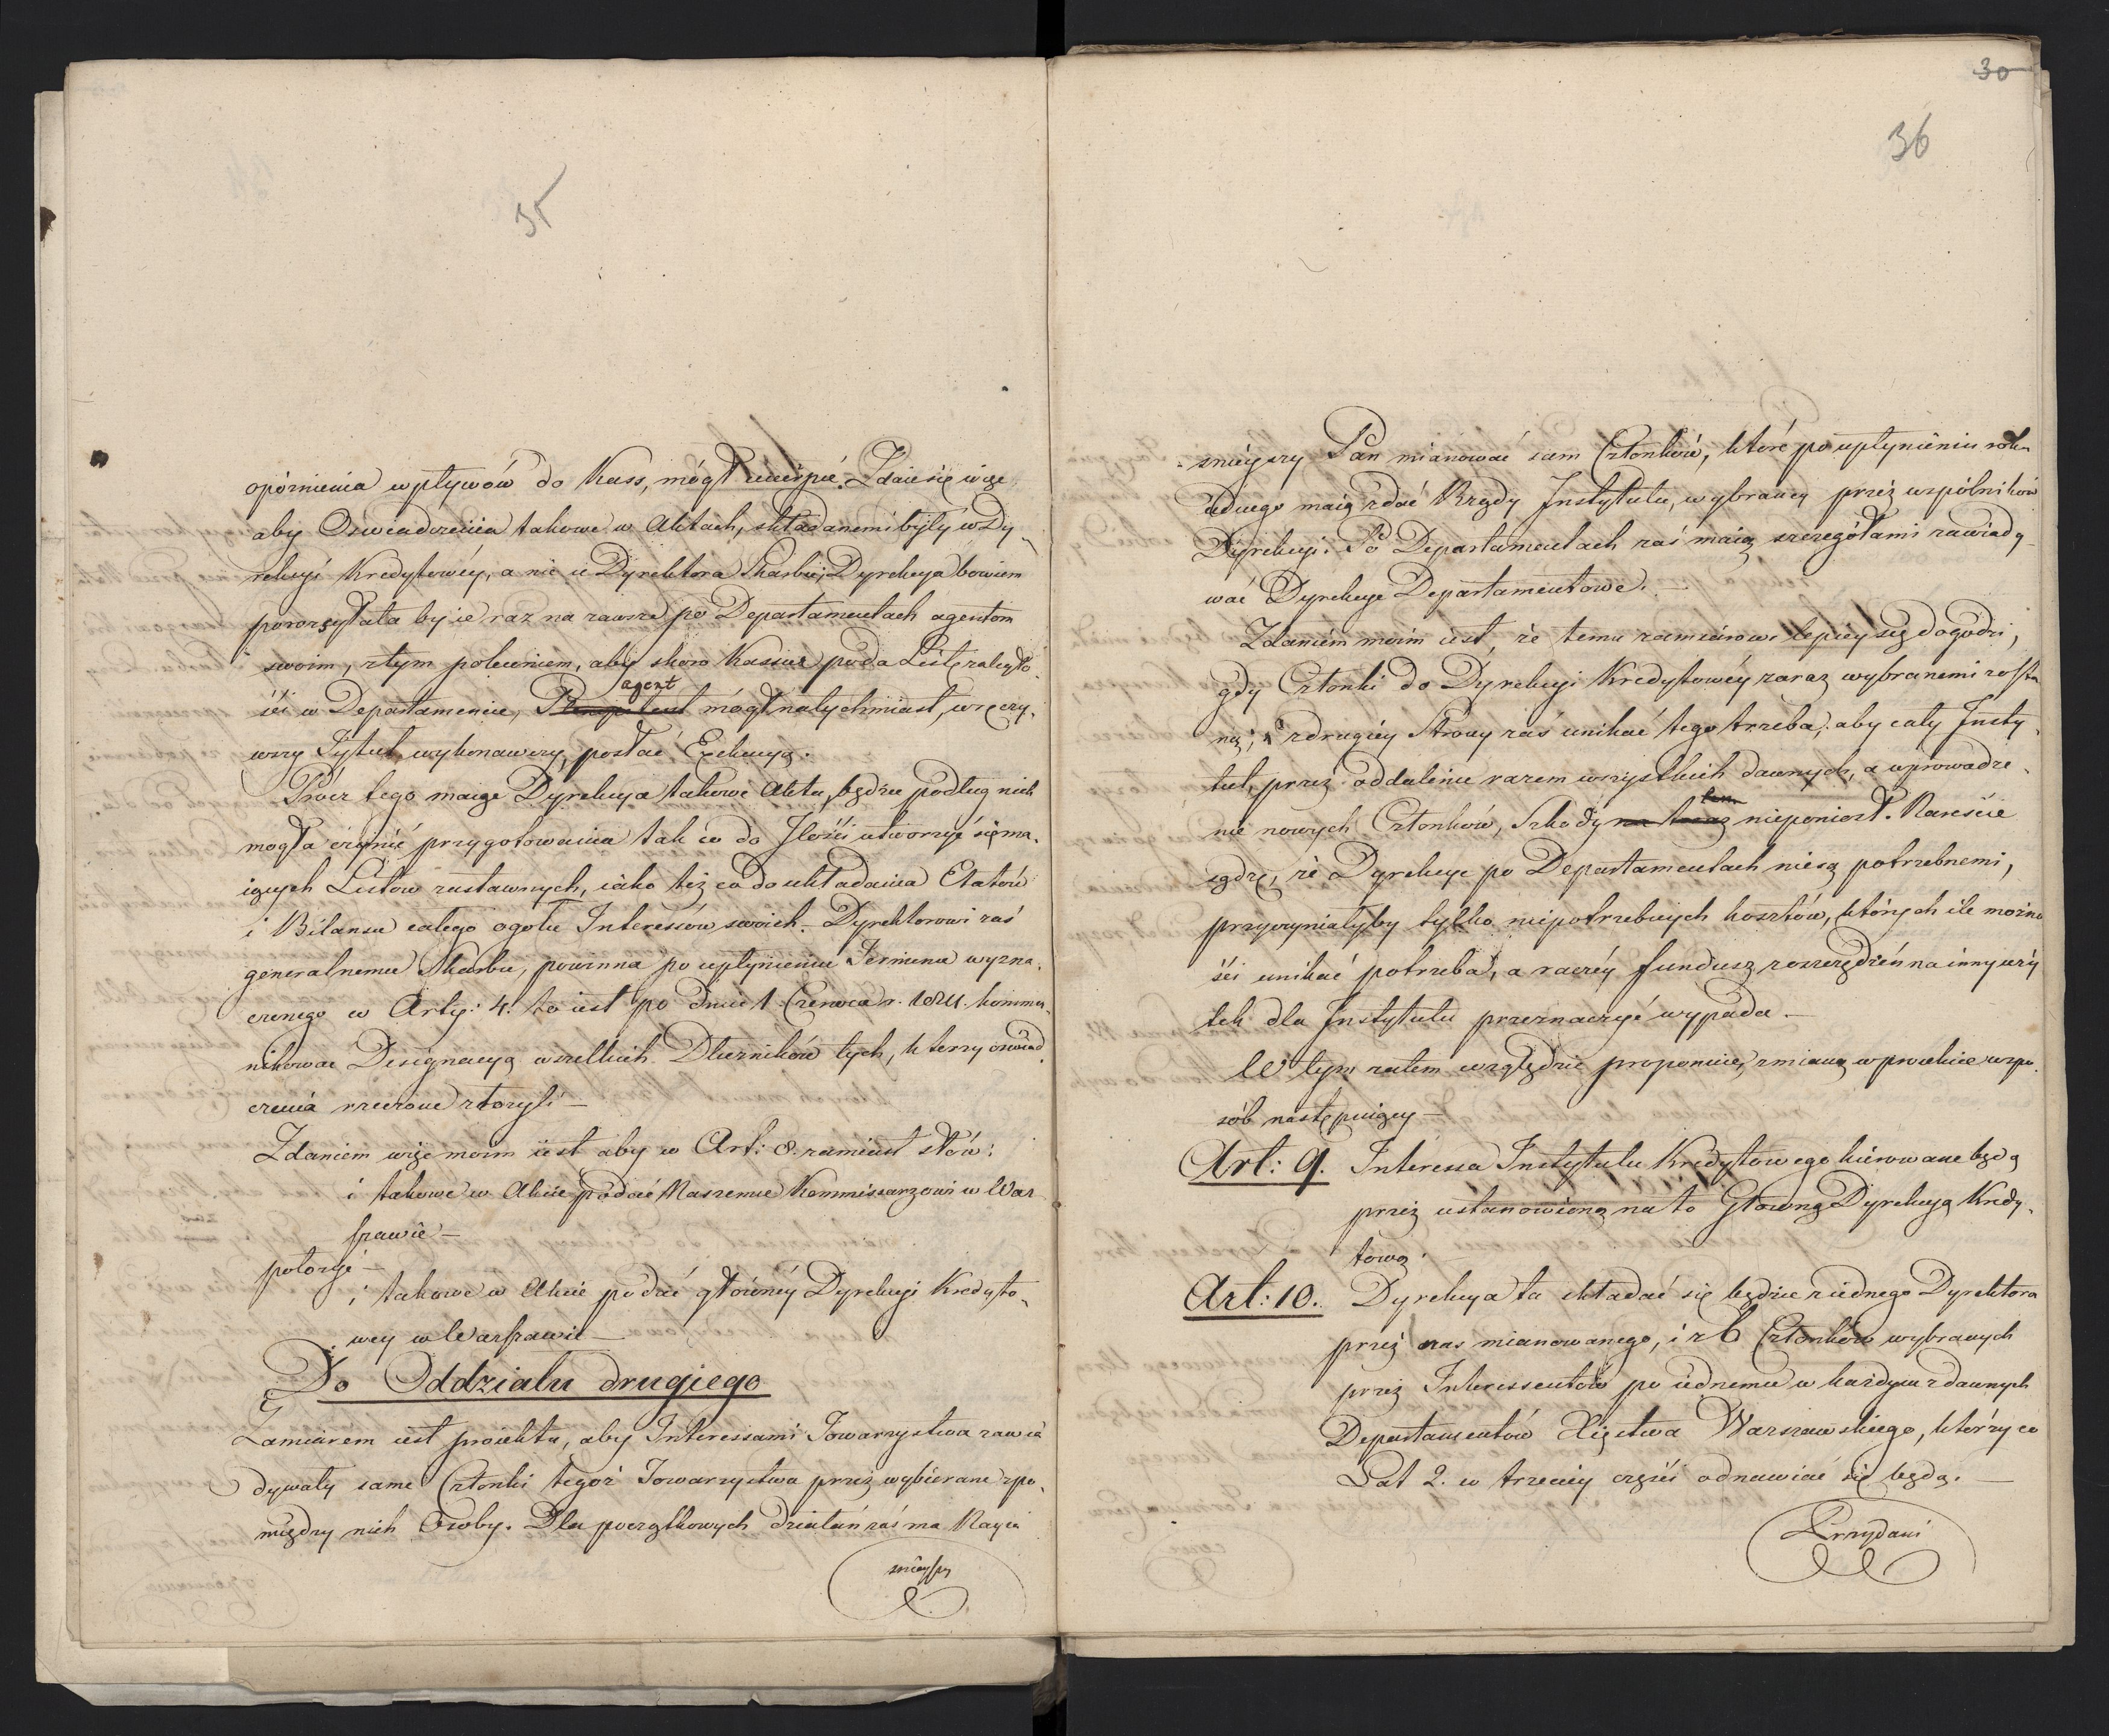 35
opóznienia wpływów do Kass, mógł ucierpieć. Zdaie się więc
aby Oswiadczenia takowe w Aktach, składanemi były w Dy-
rekcyi Kredytowéy, a nie u Dyrektora Skarbu, Dyrekcya bowiem
porozsyłała by ie raz na zawsze po Departamentach agentom
swoim, z tym poleceniem, aby skoro Kassier poda Listę zaległo-
ści w Departamencie, agent mógł natychmiast, wręczy-
wszy Tytuł wykonawczy, posłać Exekucyą.
Prócz tego maiąc Dyrekcya takowe Akta, będzie podług nich
mogła czynić przygotowania tak co do Ilości utworzyć się ma-
iących Listów zastawnych, iako też co do układania Etatów
i Bilansu całego ogółu Interessów swoich. Dyrektorowi zaś
generalnemu Skarbu, powinna po upłynieniu Terminu wyzna-
czonego w Arty: 4. to iest po dniu 1 Czerwca r. 1824. kommu-
nikować Designacyą wszelkich Dłużników tych, którzy oswiad-
czenia rzeczone złożyli —
Zdaniem więc moim iest aby w Art: 8. zamiast słów:
i takowe w Akcie podać Naszemu Kommissarzowi w War
szawie —
położyć —
i takowe w Akcie podać głównéy Dyrekcyi Kredyto-
wey w Warszawie —
Do Oddziału drugiego
Zamiarem iest proiektu, aby Interessami Towarzystwa zawia
dywały same Członki tegoż Towarzystwa przez wybierane z po-
między nich Osoby. Dla początkowych działań zaś ma Nayia
śnieyszy
30
36
śnieyszy Pan mianować sam Członków, które po upłynieniu roku
iednego maią zdać Rządy Instytutu, wybranej przez wspólników
Dyrekcyi. Po Departamentach zaś maią szczegółami zawiady-
wać Dyrekcye Departamentowe. —
Zdaniem moim iest, że temu zamiarowi lepiéy się dogodzi,
gdy Członki do Dyrekcyi Kredytowéy zaraz wybranemi zosta
ną; z drugiéy Strony zaś unikać tego trzeba, aby cały Insty-
tut, przez oddalenie razem wszystkich dawnych, a wprowadze-
nie nowych Członków, Szkody nieponiosł. Nareście
sądzę, że Dyrekcye po Departamentach nie są potrzebnemi,
przyczyniałyby tylko niepotrzebnych kosztów, których ile możno
ści unikać potrzeba, a raczéy fundusz zoszczędzon na inny uży
tek dla Instytutu przeznaczyć wypada —
W tym zatem względzie proponuię, zmianę w proiekcie w spo-
sób następuiący —
Art: 9. Interessa Instytutu Kredytowego kierowane będą
przez ustanowioną na to Główną Dyrekcyą Kredy-
tową.
Art: 10. Dyrekcya ta składać się będzie z iednego Dyrektora
przez nas mianowanego, i z 6 Członków wybranych
przez Interessentów po iednemu w każdym z dawnych
Departamentów Xięstwa Warszawskiego, którzy co
Lat 2. w trzeciéy części odnawiać się będą. —
Przydani